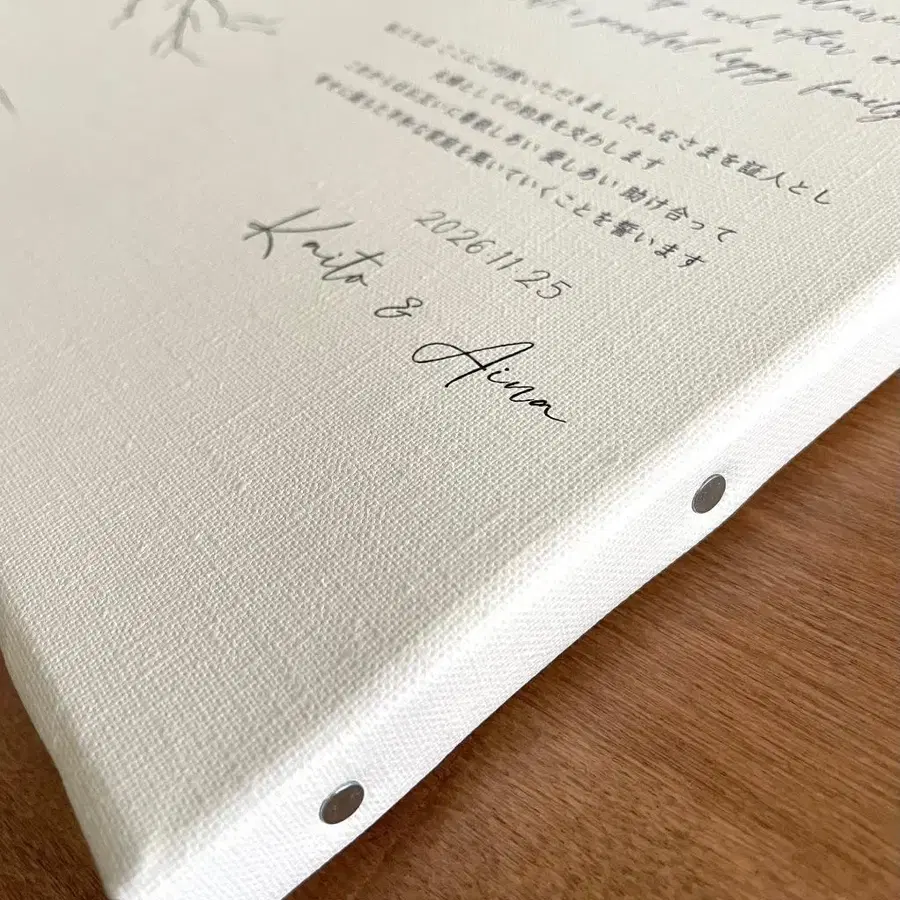 and often
a peaceful happy family
ここにご列席いただきましたみなさまを証人とし
夫婦としての約束を交わします
これからはお互いに尊敬しあい 愛しあい 助け合って
幸せに満ちた平和な家庭を築いていくことを誓います
2026.11.25
Kaito & Aina